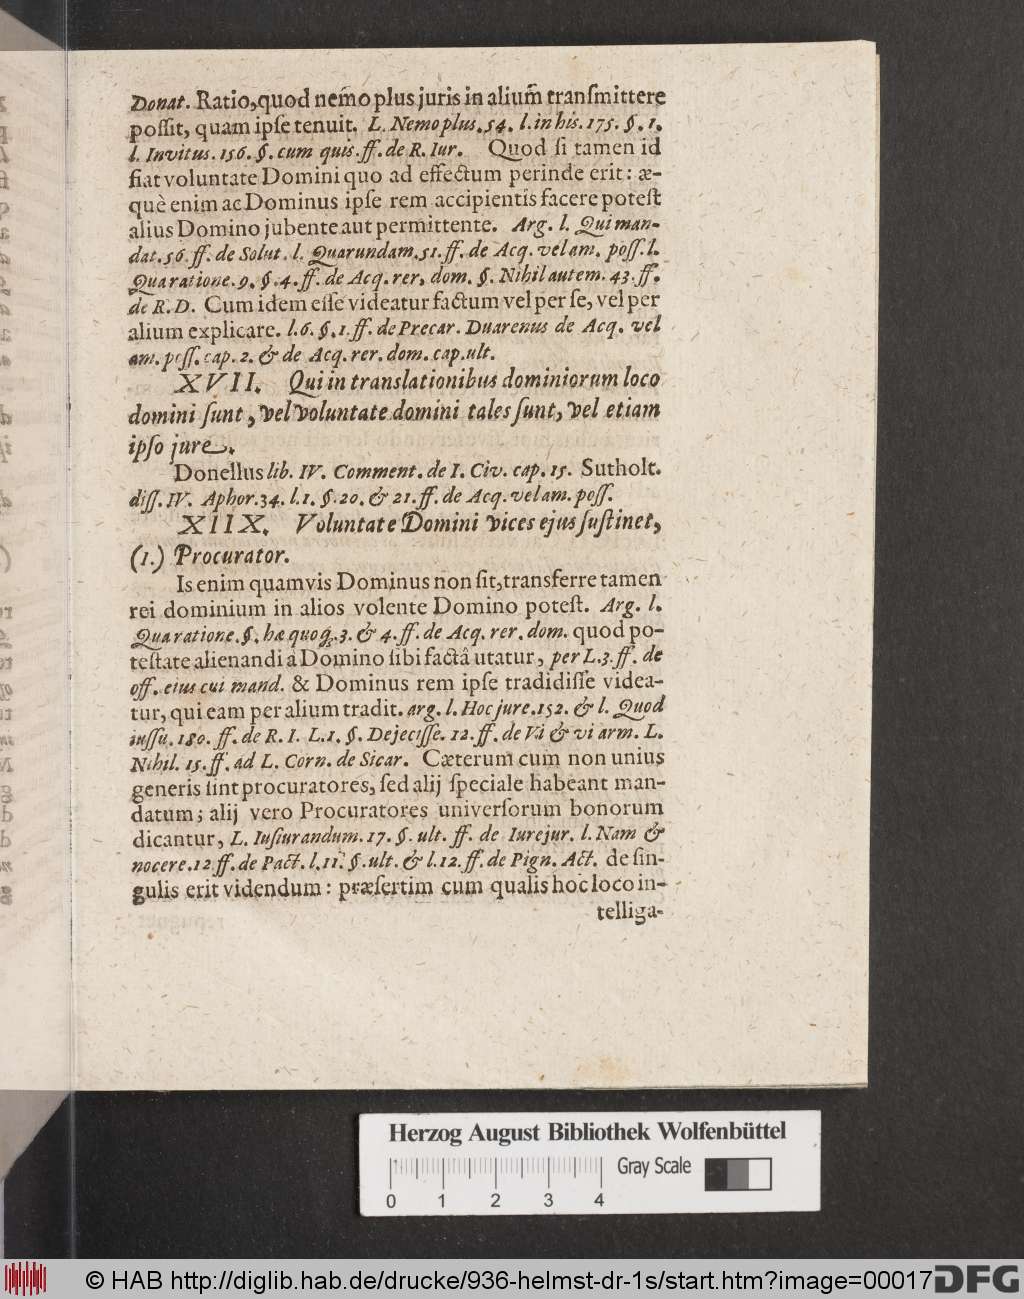 Donat. Ratio, quod nem̃o plus juris in alium̃ tranſmittere
poſſit, quam ipſe tenuit. L. Nemo plus. 54. l. in his. 175. §. 1.
l. Invitus. 156. §. cum quis. ff. de R. Iur. Quod ſi tamen id
fiat voluntate Domini quo ad effectum perinde erit: æ-
què enim ac Dominus ipſe rem accipientis facere poteſt
alius Domino jubente aut permittente. Arg. l. Qui man-
dat. 56. ff. de Solut. l. Quarundam. 51. ff. de Acq. vel am. poſſ. l.
Qua ratione. 9. §. 4. ff. de Acq. rer. dom. §. Nihil autem. 43. ff.
de R. D. Cum idem eſſe videatur factum vel per ſe, vel per
alium explicare. l. 6. §. 1. ff. de Precar. Duarenus de Acq. vel
am. poſſ. cap. 2. & de Acq. rer. dom. cap. ult.
XVII. Qui in translationibus dominiorum loco
domini ſunt, vel voluntate domini tales ſunt, vel etiam
ipſo jure.
Donellus lib. IV. Comment. de I. Civ. cap. 15. Sutholt.
diſſ. IV. Aphor. 34. l. 1. §. 20. & 21. ff. de Acq. vel am. poſſ.
XIIX. Voluntate Domini vices ejus ſuſtinet,
(1.) Procurator.
Is enim quamvis Dominus non ſit, transferre tamen
rei dominium in alios volente Domino poteſt. Arg. l.
Qua ratione. §. hæ quoq́;. 3. & 4. ff. de Acq. rer. dom. quod po-
teſtate alienandi â Domino ſibi factâ utatur, per L. 3. ff. de
off. eius cui mand. & Dominus rem ipſe tradidiſſe videa-
tur, qui eam per alium tradit. arg. l. Hoc jure. 152. & l. Quod
iuſſu. 180. ff. de R. I. L. 1. §. Dejeciſſe. 12. ff. de Vi & vi arm. L.
Nihil. 15. ff. ad L. Corn. de Sicar. Cæterum cum non unius
generis ſint procuratores, ſed alij ſpeciale habeant man-
datum; alij vero Procuratores univerſorum bonorum
dicantur, L. Iuſiurandum. 17. §. ult. ff. de Iurejur. l. Nam &
nocere. 12. ff. de Pact. l. 11. §. ult. & l. 12. ff. de Pign. Act. de ſin-
gulis erit videndum: præſertim cum qualis hoc loco in-
telliga-
Herzog August Bibliothek Wolfenbüttel
Gray Scale
0 1 2 3 4
© HAB http://diglib.hab.de/drucke/936-helmst-dr-1s/start.htm?image=00017
DFG